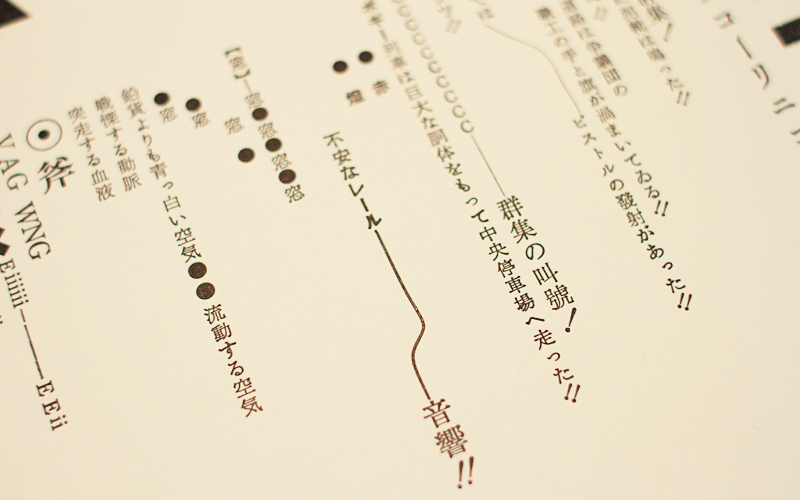 ーリニ
った!!
道路は争議団の
職工の手と旗が渦まいてゐる!!
ピストルの發射があった!!
CCCCCCCCC――群集の叫號!
列車は巨大な胴体をもって中央停車場へ走った!!
●赤
●煙
不安なレール――音響!!
【窓】―窓●窓●窓●窓
●窓
●窓
窓●
鉛貨よりも青っ白い空気●●流動する空気
戰慄する動脈
突走する血液
◉斧
VAG WNG
Eiiiiii――E Eii